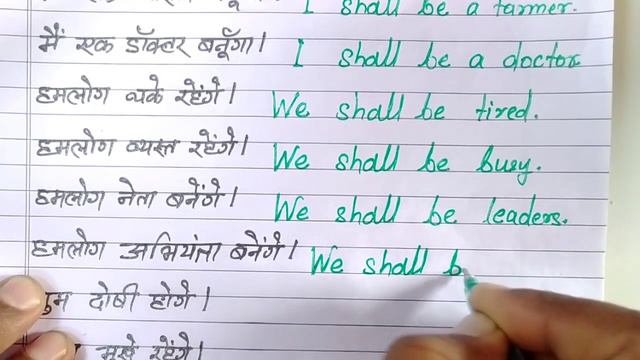 I shall be a farmer.
मैं एक डॉक्टर बनूँगा। I shall be a doctor
हमलोग थके रहेंगे। We shall be tired.
हमलोग व्यस्त रहेंगे। We shall be busy.
हमलोग नेता बनेंगे। We shall be leaders.
हमलोग अभियंता बनेंगे। We shall b
तुम दोषी होगे।
भूखे रहेंगे।